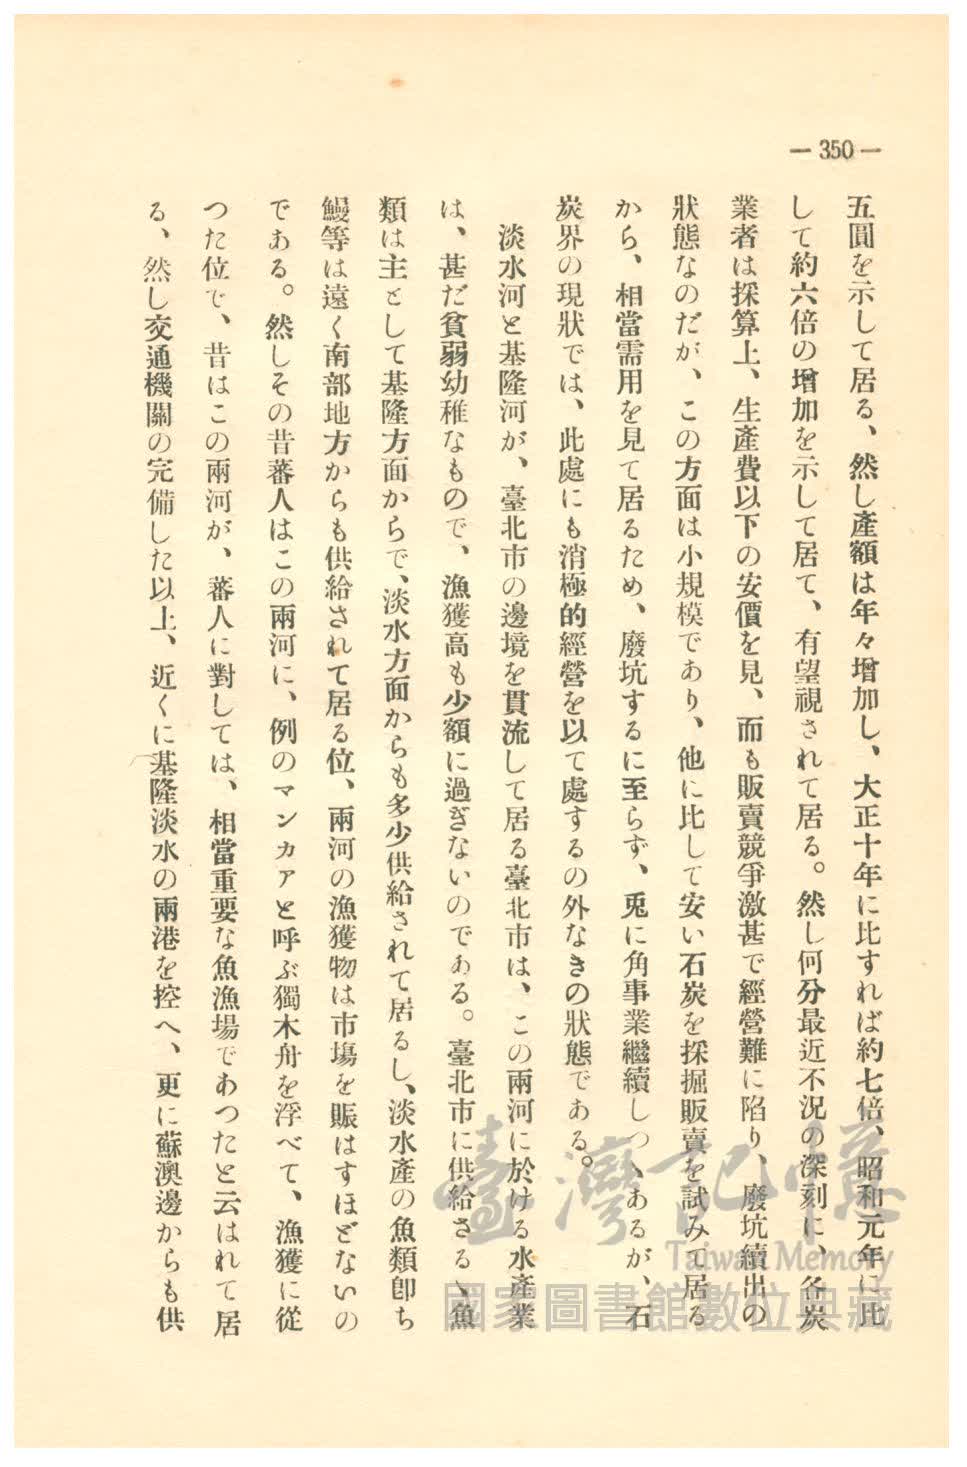 — 350 —
五圓を示して居る、然し產額は年々增加し、大正十年に比すれば約七倍、昭和元年に比
して約六倍の增加を示して居て、有望視されて居る。然し何分最近不況の深刻に、各炭
業者は採算上、生產費以下の安價を見、而も販賣競爭激甚で經營難に陷り、廢坑續出の
狀態なのだが、この方面は小規模であり、他に比して安い石炭を採掘販賣を試みて居る
から、相當需用を見て居るため、廢坑するに至らず、兎に角事業繼續しつゝあるが、石
炭界の現狀では、此處にも消極的經營を以て處するの外なきの狀態である。
淡水河と基隆河が、臺北市の邊境を貫流して居る臺北市は、この兩河に於ける水產業
は、甚だ貧弱幼稚なもので、漁獲高も少額に過ぎないのである。臺北市に供給さるゝ魚
類は主として基隆方面からで、淡水方面からも多少供給されて居るし、淡水產の魚類卽ち
鰻等は遠く南部地方からも供給されて居る位、兩河の漁獲物は市場を賑はすほどないの
である。然しその昔蕃人はこの兩河に、例のマンカアと呼ぶ獨木舟を浮べて、漁獲に從
つた位で、昔はこの兩河が、蕃人に對しては、相當重要な魚漁場であつたと云はれて居
る、然し交通機關の完備した以上、近くに基隆淡水の兩港を控へ、更に蘇澳邊からも供
臺灣記憶
Taiwan Memory
國家圖書館數位典藏